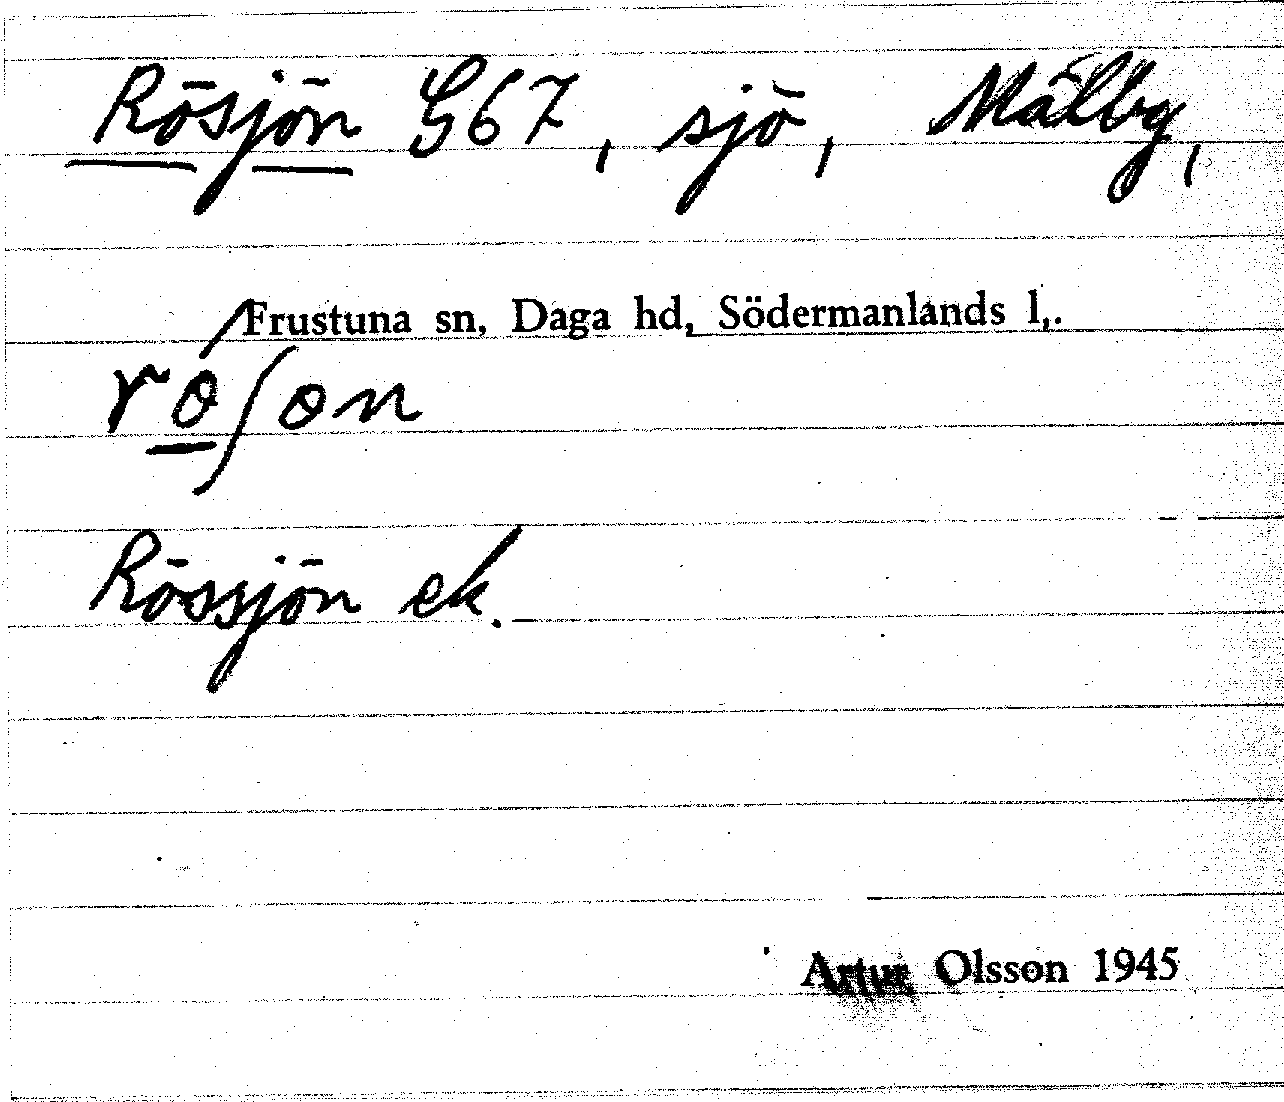 Rösjön G67, sjö, Mälby,
Frustuna sn, Daga hd, Södermanlands l,.
rö́ʃɵn
Rössjön ek.
Artur Olsson 1945